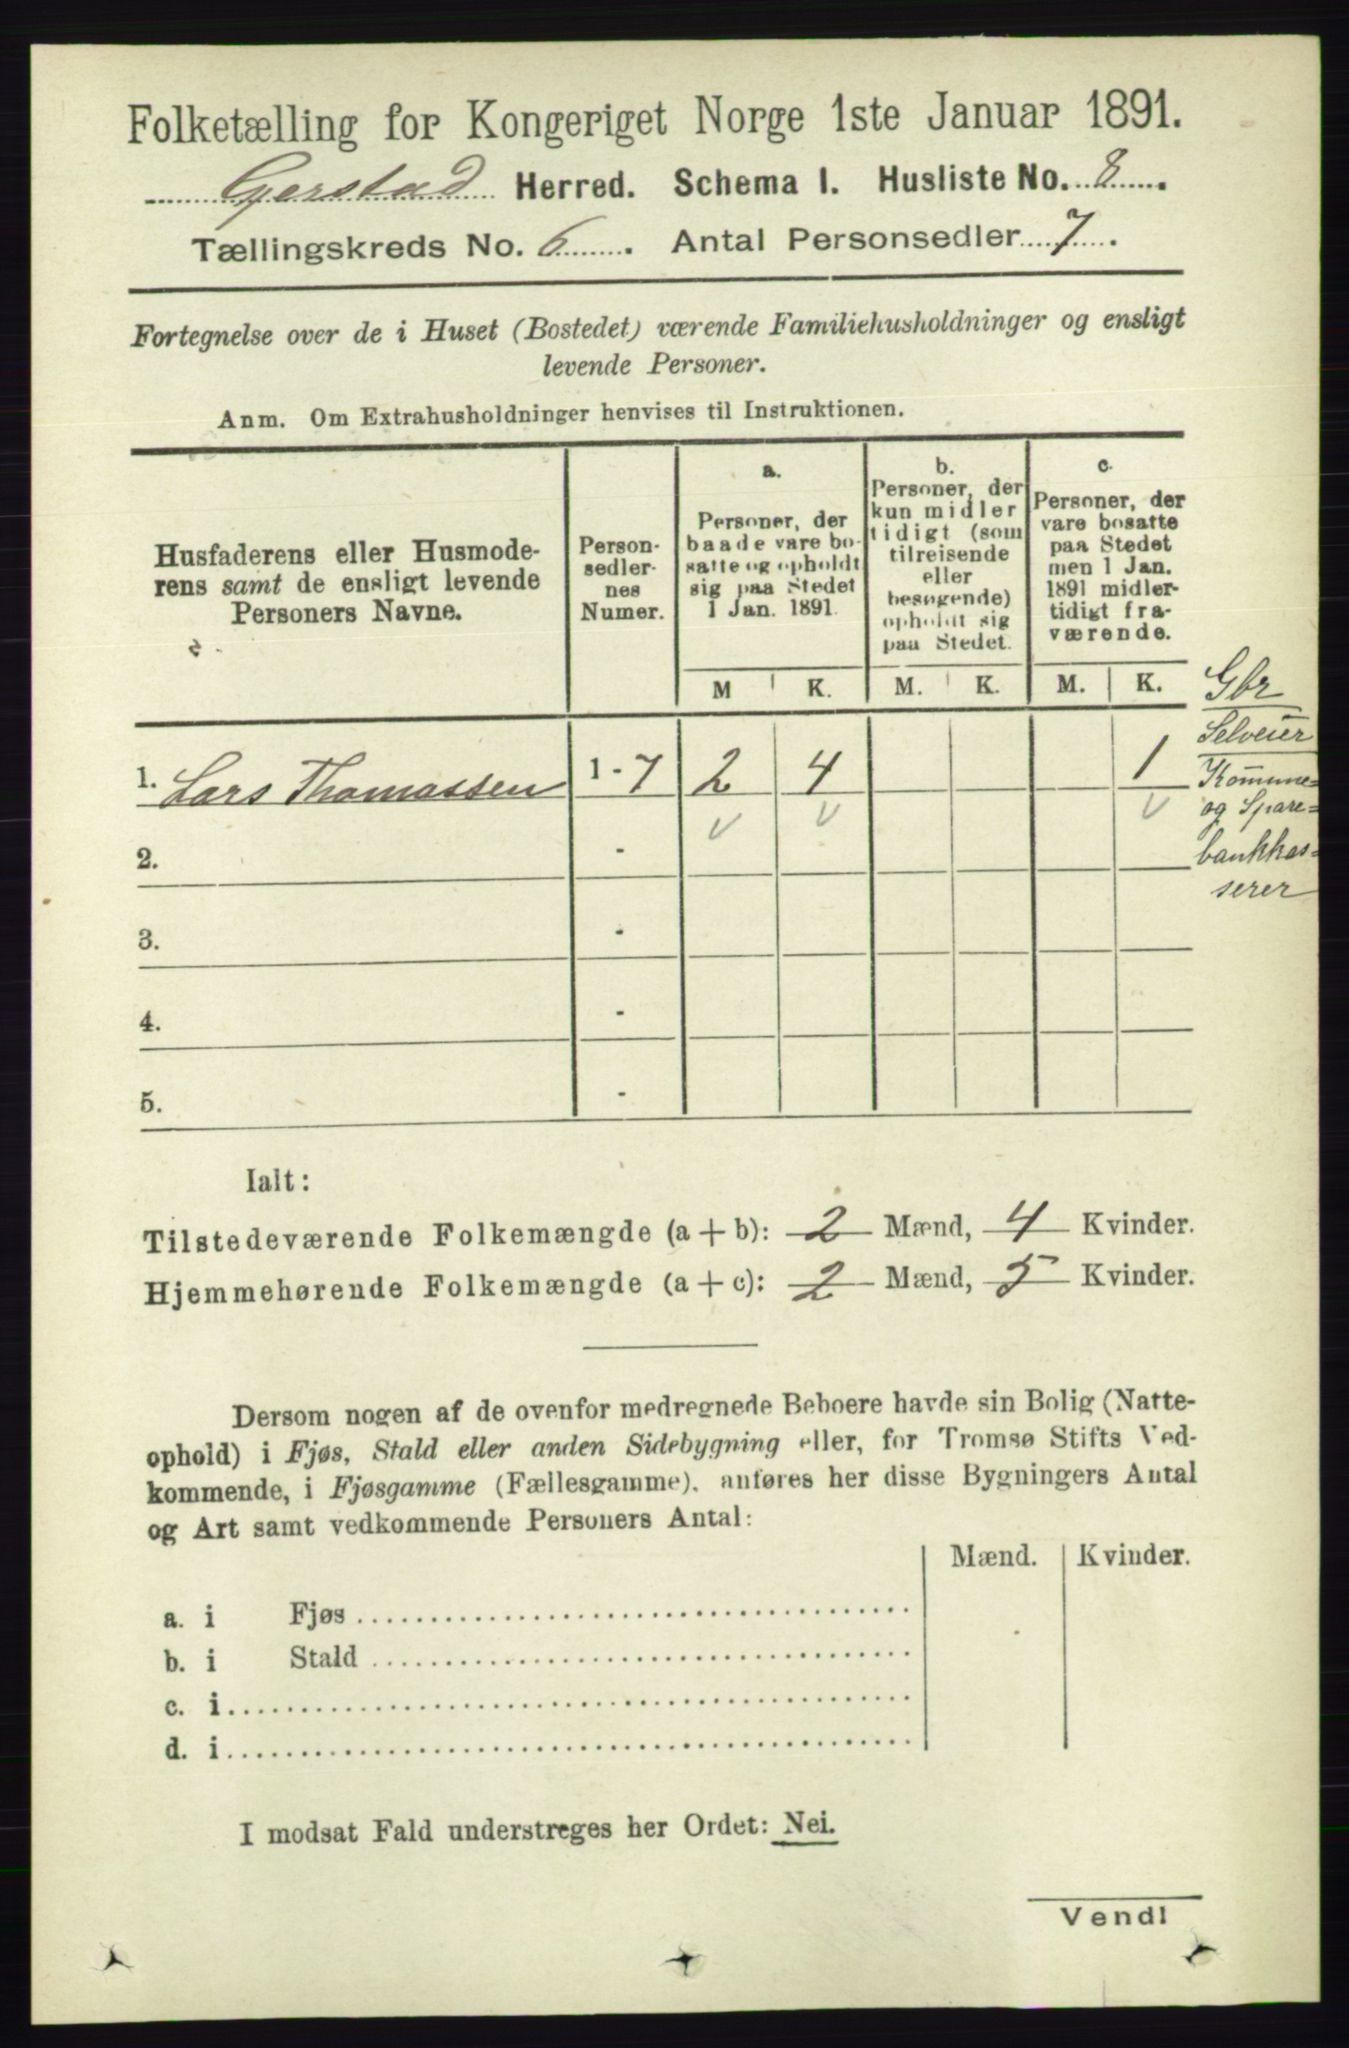 Folketælling for Kongeriget Norge 1ste Januar 1891.
Gerstad Herred. Schema I. Husliste No. 8.
Tællingskreds No. 6. Antal Personsedler 7.
Fortegnelse over de i Huset (Bostedet) værende Familiehusholdninger og ensligt
levende Personer.
Anm. Om Extrahusholdninger henvises til Instruktionen.
Husfaderens eller Husmode-
rens samt de ensligt levende
Personers Navne.
Person-
sedler-
nes
Numer.
a.
Personer, der
baade vare bo-
satte og opholdt
sig paa Stedet
1 Jan. 1891.
b.
Personer, der
kun midler
tidigt (som
tilreisende
eller
besøgende)
opholdt sig
paa Stedet.
c.
Personer, der
vare bosatte
paa Stedet
men 1 Jan.
1891 midler-
tidigt fra-
værende.
M K. M. K. M. K.
Gbr
Selveier
Kommune=
og Spare=
bankkas=
serer
1. Lars Thomassen 1 - 7 2 4 1
2. -
3. -
4. -
5. -
Ialt:
Tilstedeværende Folkemængde (a + b): 2 Mænd, 4 Kvinder.
Hjemmehørende Folkemængde (a + c): 2 Mænd, 5 Kvinder.
Dersom nogen af de ovenfor medregnede Beboere havde sin Bolig (Natte-
ophold) i Fjøs, Stald eller anden Sidebygning eller, for Tromsø Stifts Ved-
kommende, i Fjøsgamme (Fællesgamme), anføres her disse Bygningers Antal
og Art samt vedkommende Personers Antal:
Mænd. Kvinder.
a. i Fjøs
b. i Stald
c. i
d. i
I modsat Fald understreges her Ordet: Nei.
Vendl